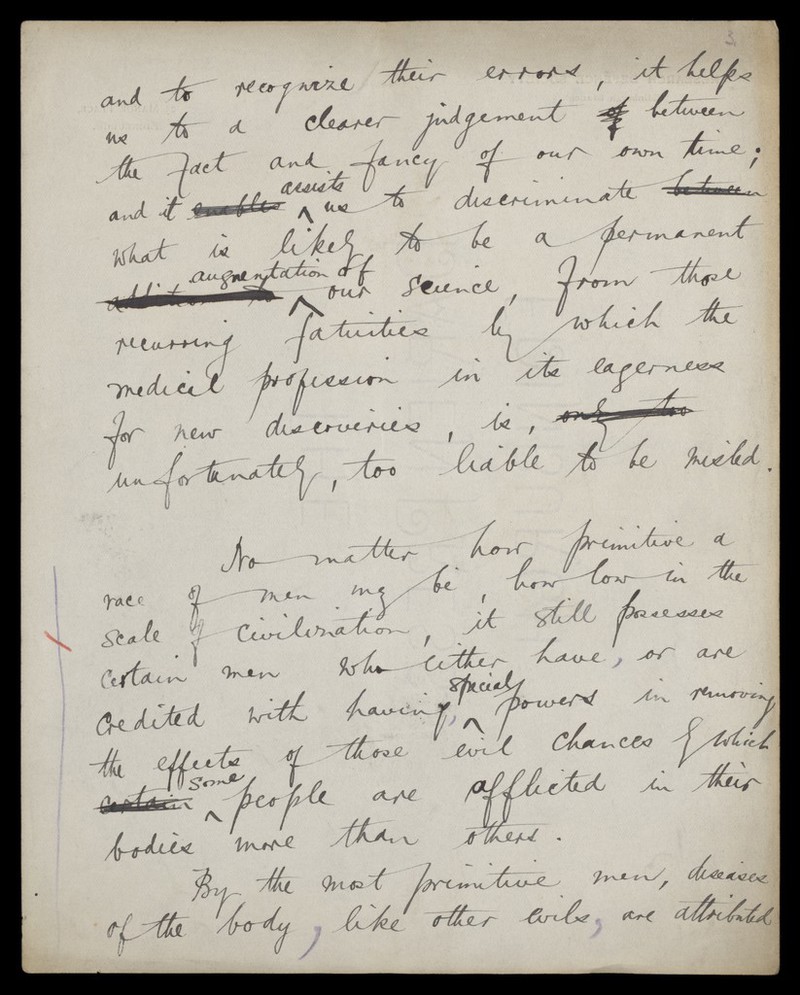 3
and to recognize their errors, it helps
us to a clearer judgement of between
the fact and fancy of our own time;
and it enables assists us to discriminate between
what is likely to be a permanent
addition to augmentation of our science, from those
recurring fatuities by which the
medical profession in its eagerness
for new discoveries, is, only too
unfortunately, too liable to be misled.
No matter how primitive a
race of men my be, how low in the
scale of civilization, it still possesses
certain men who either have, or are
credited with having, special powers in removing
the effects of those evil chances by which
certain some people are afflicted in their
bodies more than others.
By the most primitive men, diseases
of the body, like other evils, are attributed